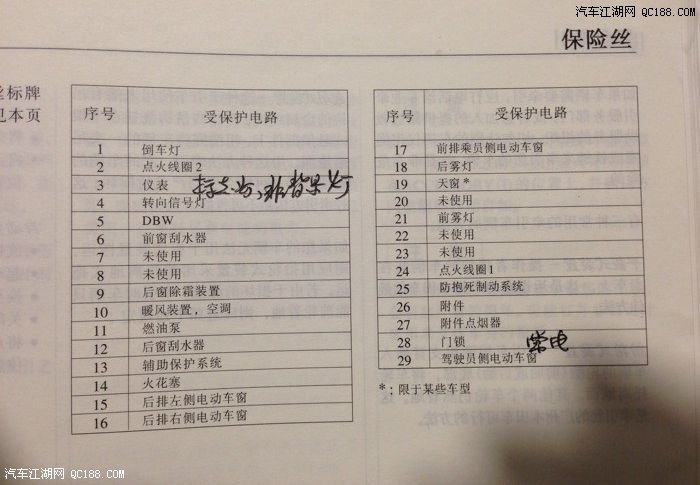 汽车江湖网 QC188.COM
保险丝
丝标牌
见本页
序号 受保护电路
1 倒车灯
2 点火线圈2
3 仪表
4 转向信号灯
5 DBW
6 前窗刮水器
7 未使用
8 未使用
9 后窗除霜装置
10 暖风装置，空调
11 燃油泵
12 后窗刮水器
13 辅助保护系统
14 火花塞
15 后排左侧电动车窗
16 后排右侧电动车窗
序号 受保护电路
17 前排乘员侧电动车窗
18 后雾灯
19 天窗*
20 未使用
21 前雾灯
22 未使用
23 未使用
24 点火线圈1
25 防抱死制动系统
26 附件
27 附件点烟器
28 门锁 常电
29 驾驶员侧电动车窗
*：限于某些车型
汽车江湖网 QC188.COM
汽车江湖网 QC188.COM